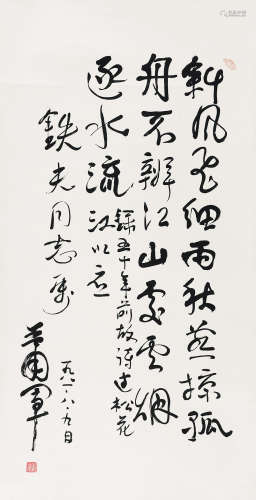 斜风飞细雨秋燕掠孤
舟不辨江山处云烟
逐水流
录五十年前故诗过松花
江以应
鉄夫同志属
萧军
一九八一·八·九日